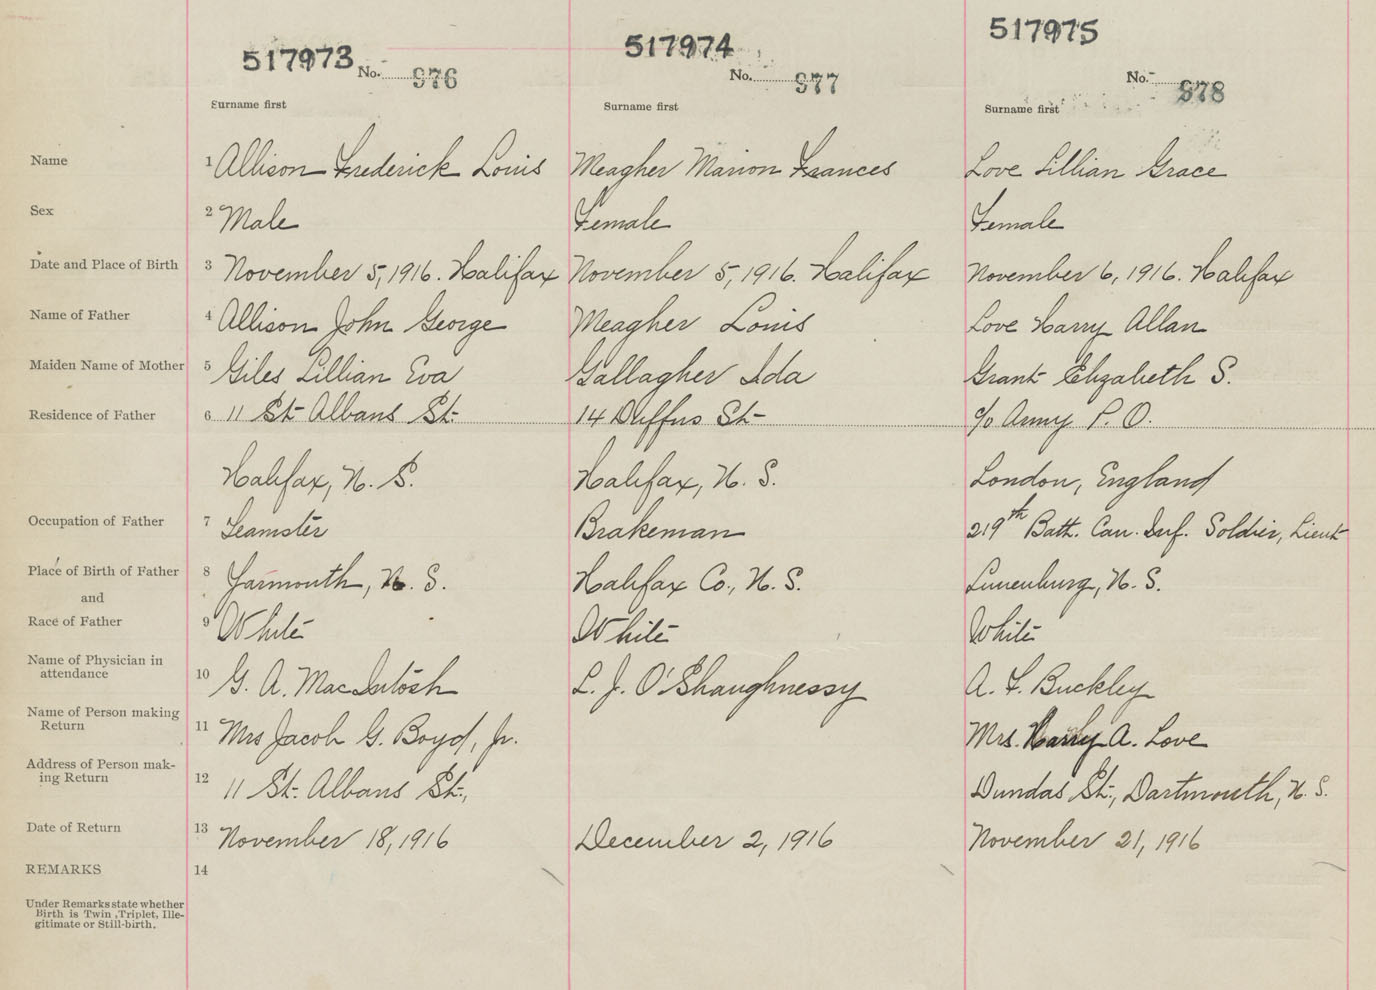 517973 517974 517975
No. 976 No. 977 No. 978
Surname first Surname first Surname first
Name 1 Allison Frederick Louis Meagher Marion Frances Love Lillian Grace
Sex 2 Male Female Female
Date and Place of Birth 3 November 5, 1916. Halifax November 5, 1916. Halifax November 6, 1916. Halifax
Name of Father 4 Allison John George Meagher Louis Love Harry Allan
Maiden Name of Mother 5 Giles Lillian Eva Gallagher Ida Grant Elizabeth S.
Residence of Father 6 11 St. Albans St. 14 Duffus St c/o Army P. O.
Halifax, N. S. Halifax, N. S. London, England
Occupation of Father 7 Teamster Brakeman 219th Batt. Can. Inf. Soldier, Lieut
Place of Birth of Father 8 Yarmouth, N. S. Halifax Co., N. S. Lunenburg, N. S.
and
Race of Father 9 White White White
Name of Physician in
attendance 10 G. A. MacIntosh L. J. O'Shaughnessy A. F. Buckley
Name of Person making
Return 11 Mrs Jacob G. Boyd, Jr. Mrs. Harry A. Love
Address of Person mak-
ing Return 12 11 St. Albans St., Dundas St., Dartmouth, N. S.
Date of Return 13 November 18, 1916 December 2, 1916 November 21, 1916
REMARKS 14
Under Remarks state whether
Birth is Twin, Triplet, Ille-
gitimate or Still-birth.